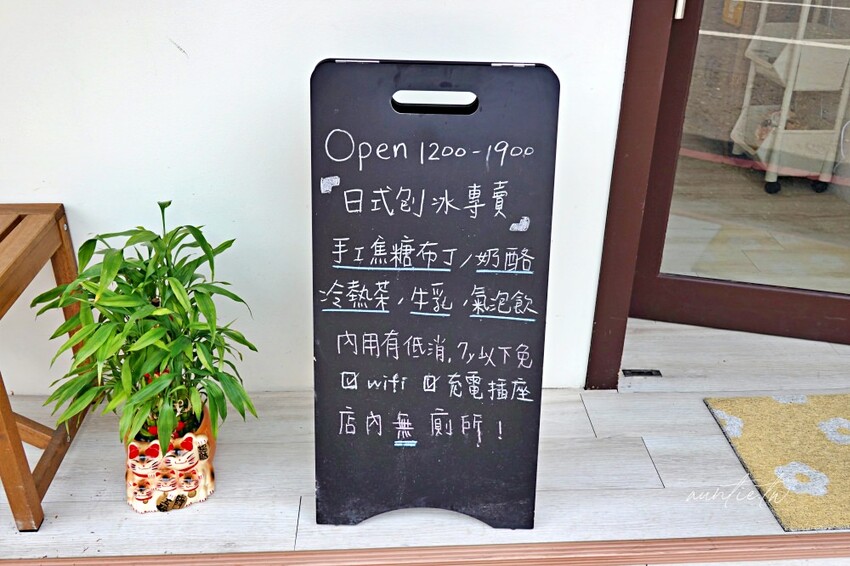 Open 1200-1900
「日式刨冰專賣」
手工焦糖布丁/奶酪
冷熱茶/牛乳/氣泡飲
內用有低消,7y以下免
☑ wifi ☑ 充電插座
店內無廁所!
auntie.tw